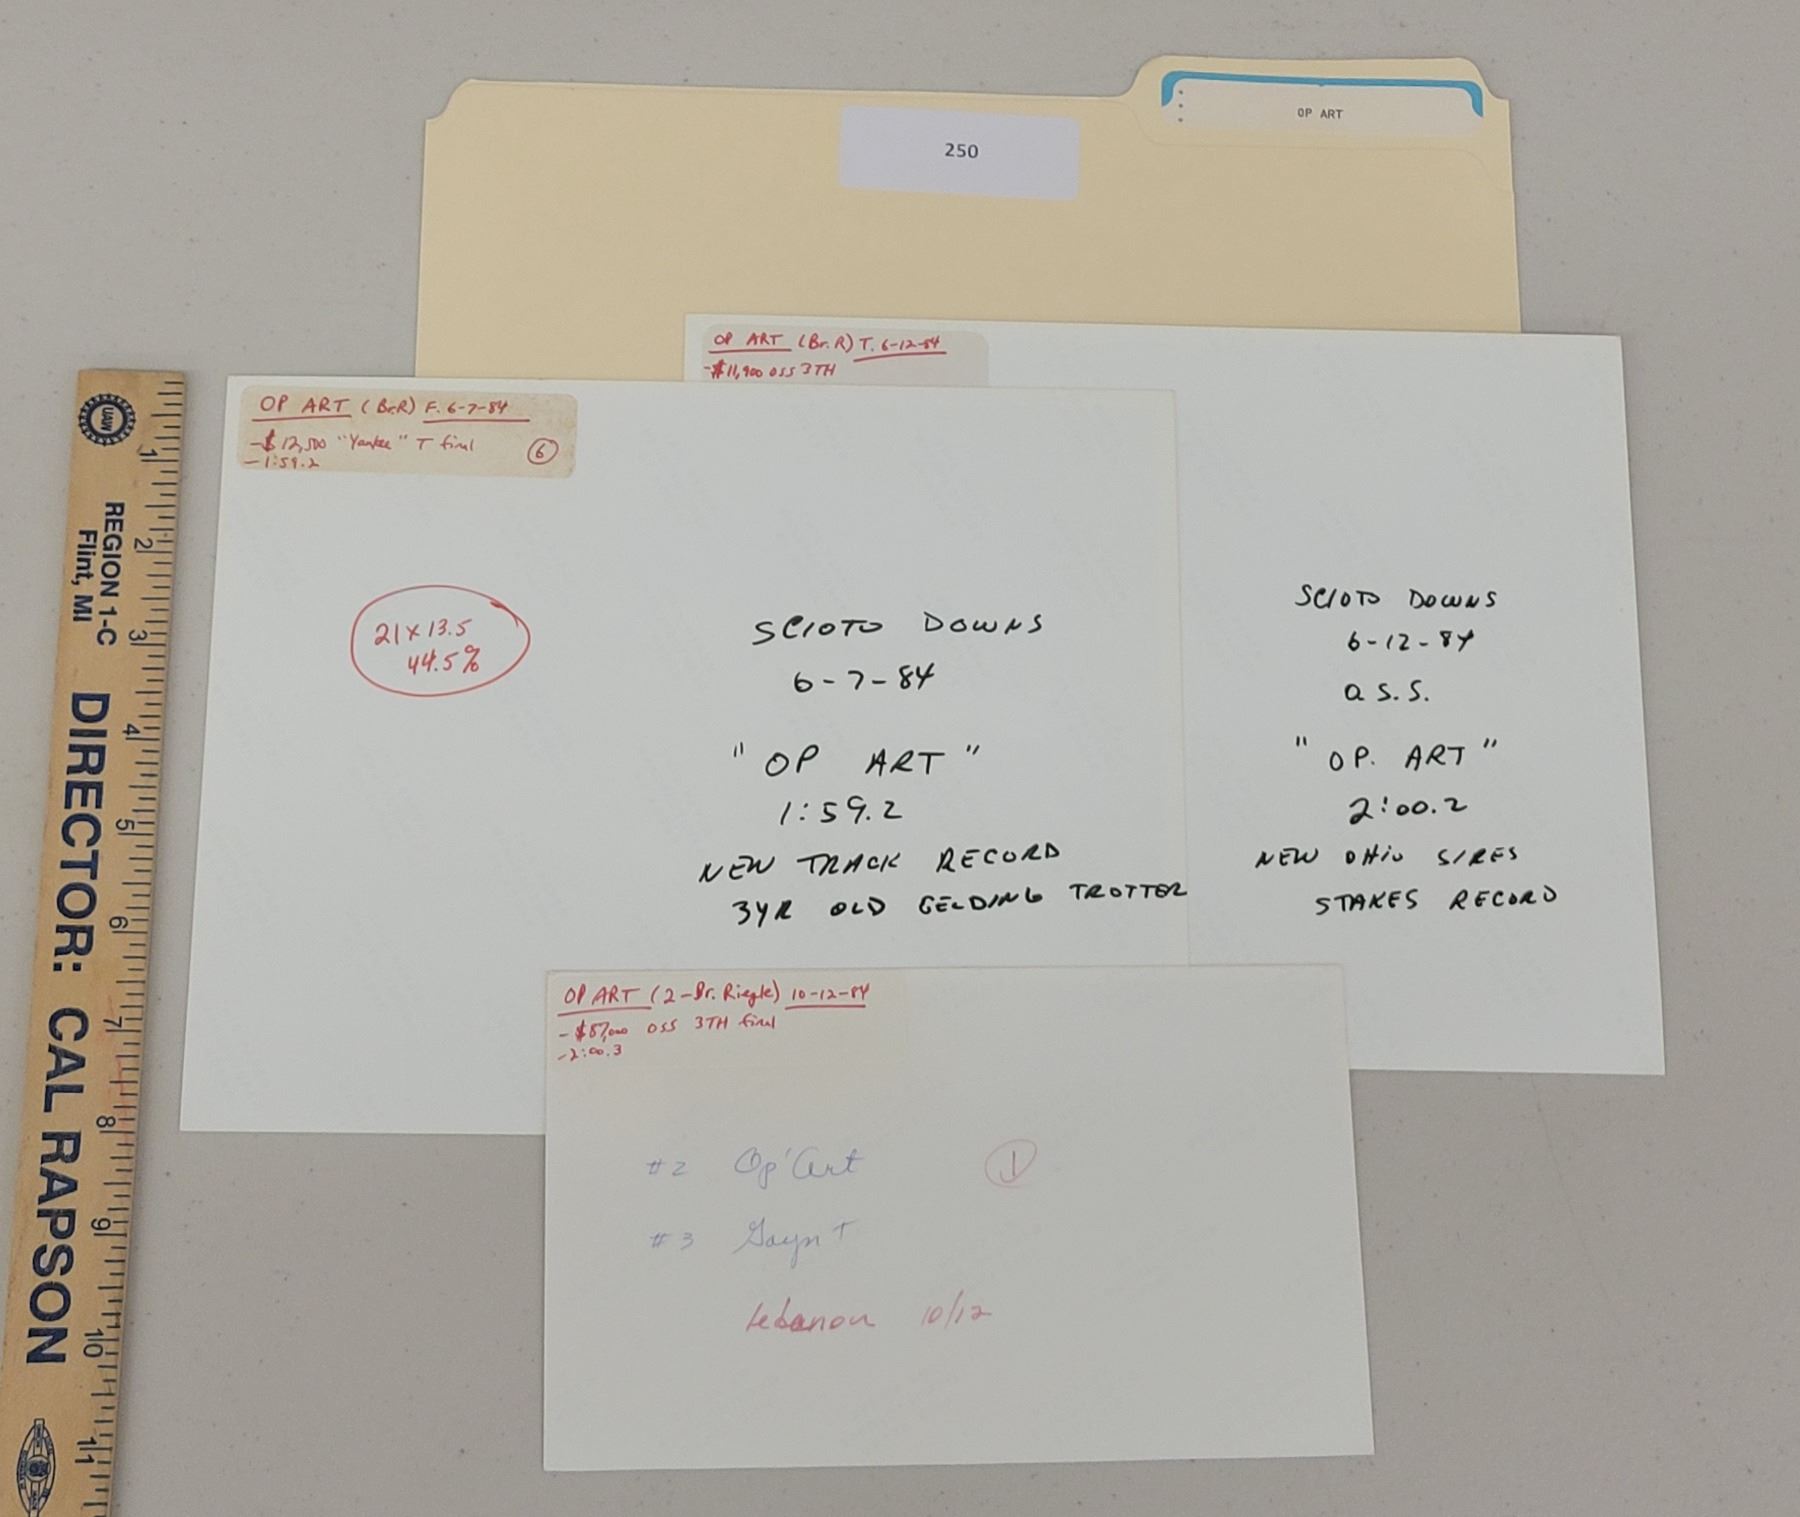 OP ART
250
OP ART (Br. R) T. 6-12-84
-$11,900 OSS 3TH
OP ART (Br.R) F. 6-7-84
-$12,500 "Yankee" T final
6
-1:59.2
21 x 13.5
44.5%
SCIOTO DOWNS
6-7-84
"OP ART"
1:59.2
NEW TRACK RECORD
3YR OLD GELDING TROTTER
SCIOTO DOWNS
6-12-84
O S.S.
"OP. ART"
2:00.2
NEW OHIO SIRES
STAKES RECORD
OP ART (2-Br. Riegle) 10-12-84
-$87,000 OSS 3TH final
-2:00.3
#2 Op' Art
1
#3 Gayn T
Lebanon 10/12
UAW
REGION 1-C
Flint, MI
DIRECTOR: CAL RAPSON
1
2
3
4
5
6
7
8
9
10
11